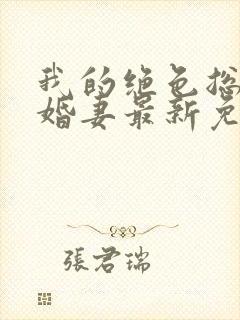 我的绝色总
婚妻最新免
張君瑞